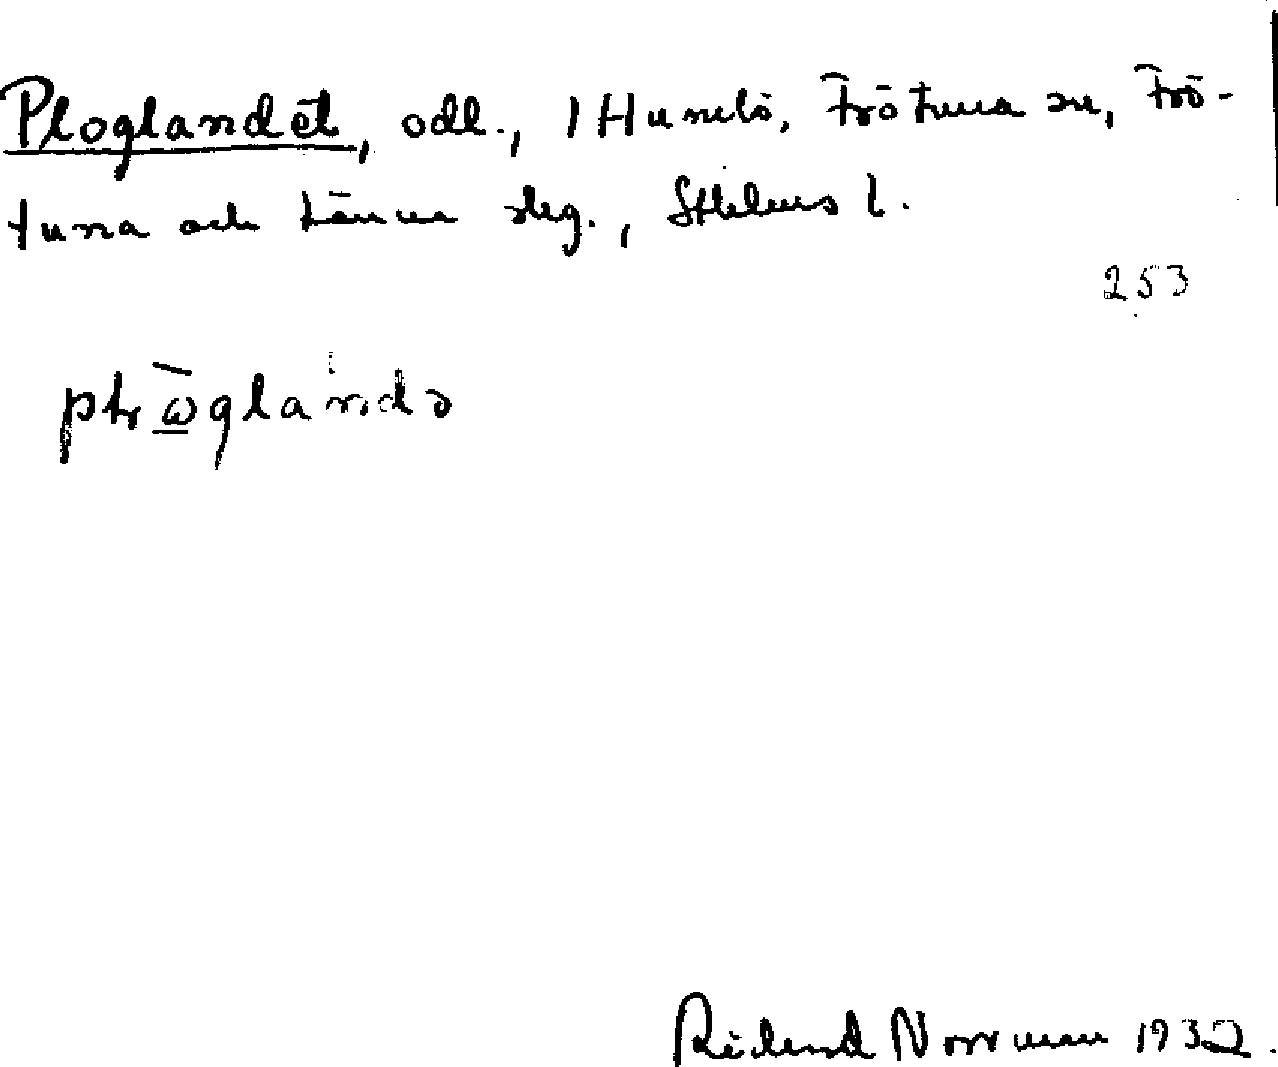 Ploglandet, odl., 1 Humlö, Frötuna sn, Frö-
tuna och Länna skg., Sthlms l.
253
Rikard Norrman 1932.